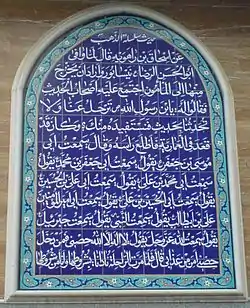 حديث سلسلة الذهب
عن اسحاق بن راهويه قال لما وافى
ابوالحسن الرضا بنيسابور واراد ان يخرج
منها الى المأمون اجتمع عليه اصحاب الحديث
فقالوا له يا بن رسول الله ترحل عنا ولا
تحدثنا بحديث فنستفيده منك وكان قد
قعد في العمارية فاطلع رأسه وقال سمعت ابي
موسى بن جعفر يقول سمعت ابي جعفر بن محمد يقول
سمعت ابي محمد بن علي يقول سمعت ابي علي بن الحسين
يقول سمعت ابي الحسين بن علي يقول سمعت ابي امير المؤمنين
علي بن ابيطالب يقول سمعت النبي يقول سمعت جبرئيل
يقول سمعت الله عز وجل يقول لا اله الا الله حصني فمن دخل
حصني امن من عذابي قال فلما مرت الراحلة نادانا بشروطها وانا من شروطها